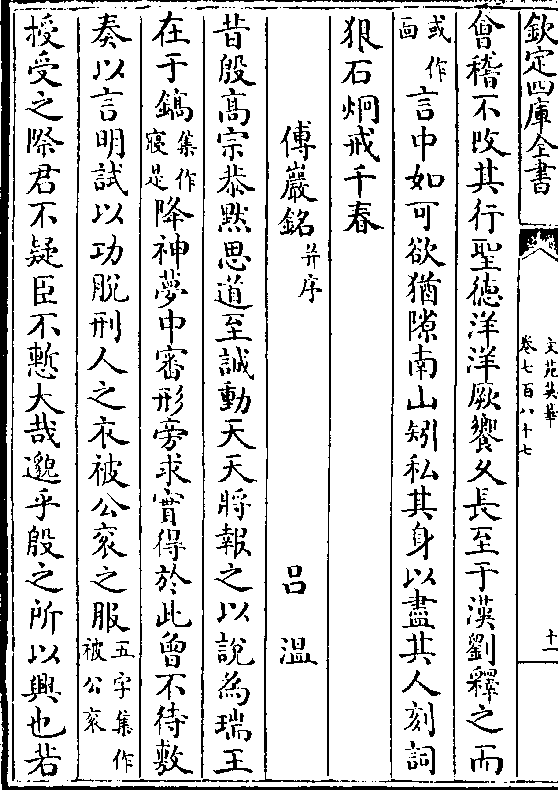 欽定四庫全書
文苑英華
卷七百八十七
十一
會稽不改其行聖德洋洋厥饗攵長至于漢劉釋之而
或作
畫
言中如可欲猶隙南山矧私其身以盡其人刻詞
狠石炯戒千春
傅巖銘并序
吕温
昔殷髙宗恭默思道至誠動天天將報之以說為瑞王
在于鎬集作
寢是
降神夢中審形旁求實得於此曾不待敷
奏以言明試以功脱刑人之衣被公衮之服五字集作
被公衮
授受之際君不疑臣不慙大哉邈乎殷之所以興也若